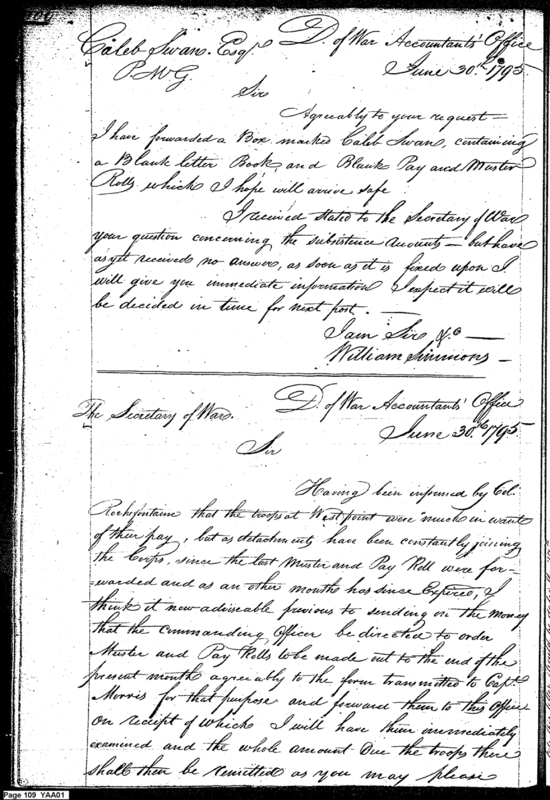 Caleb Swan. Esqr. D. of War Accountants' Office
P.M.G. June 30th. 1795
Sir
Agreeably to your request—
I have forwarded a Box marked Caleb Swan, containing
a Blank letter Book, and Blank Pay and Muster
Rolls which I hope will arrive safe
I received stated to the Secretary of War
your question concerning the subsistence accounts — but have
as yett received no answer, as soon as it is fixed upon I
will give you immediate information I expect it will
be decided in time for next post. —
I am Sir &c —
William Simmons —
The Secretary of War. D. of War Accountants' Office
June 30th 1795
Sir
Having been informed by Col.
Rochfontaine that the troops at West point were "much in want
of their pay, but as detachments have been constantly joining
the Corps, since the last Muster and Pay Roll were for-
warded and as an other months has since Expired, I
think it now adviseable previous to sending on the Money
that the commanding Officer be directed to order
Muster and Pay Rolls to be made out to the end of the
present month agreeably to the form transmitted to Capt.
Morris for that purpose and forward them to this Office
on receipt of which I will have them immediately
examined and the whole amount Due the troops there
shall then be remitted as you may please
Page 109 YAA01